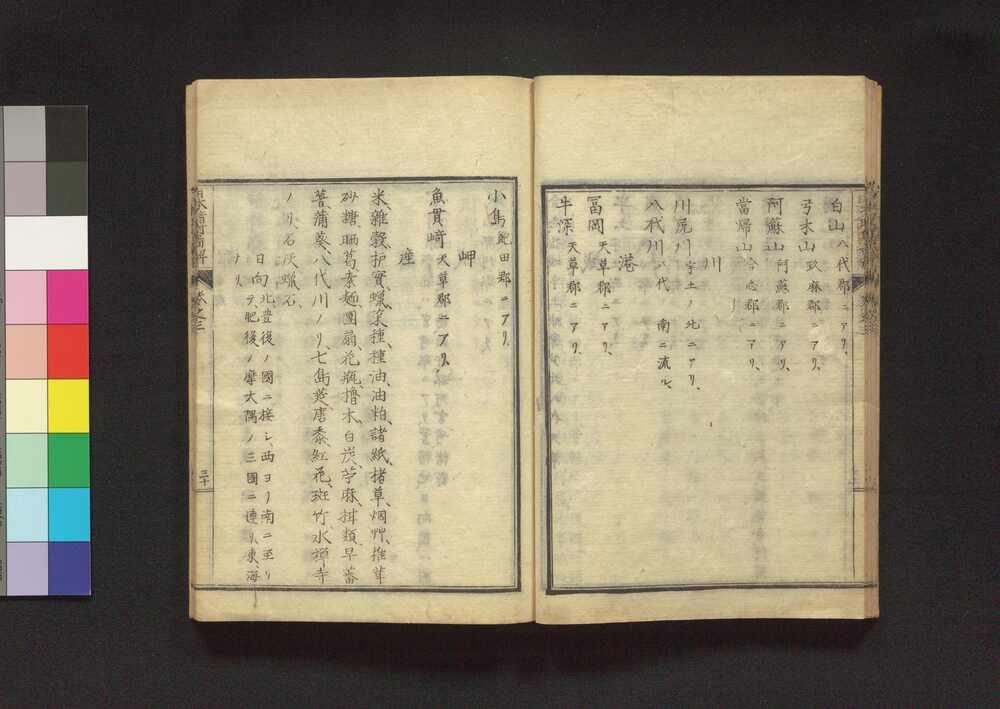 白山 八代郡ニアリ、
弓木山 玖麻郡ニアリ、
阿蘇山 阿蘇郡ニアリ、
當帰山 合志郡ニアリ、
川
川尻川 宇土ノ北ニアリ、
八代川 八代ノ南ニ流ル、
港
冨岡 天草郡ニアリ、
牛深 天草郡ニアリ、
小島 飽田郡ニアリ、
岬
魚貫﨑 天草郡ニアリ、
産
米、雜穀、护實、蝋、菜種、種油、油粕、諸紙、楮草、烟艸、推茸
砂糖、晒葛、索麺、團扇、花瓶、櫓木、白炭、苧麻、𦁤類、早蕃
薯、蒲葵、八代川ノリ、七島莚、唐黍、紅花、斑竹、水禅寺
ノリ、石灰、蝋石、
日向 北豊後ノ國ニ接シ、西ヨリ南ニ至リ
テ、肥後ノ摩大隅ノ三國ニ連リ、東、海
ナリ、
卷之三
三十